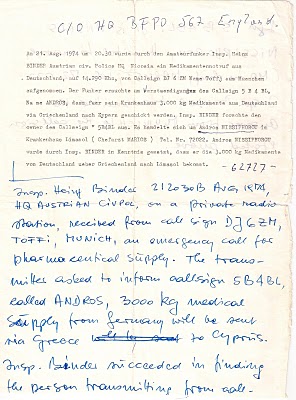 C/O HQ BFPO 567 England.
Am 21. Aug. 1974 um 20.30 wurde durch den Amateurfunker Insp. Heinz
BINDER Austrian civ. Police HQ Nicosia ein Medikamentennotruf aus
Deutschland, auf 14.290 Khz, von Callsign DJ 6 ZM Name Toffi aus Muenchen
aufgenommen. Der Funker ersuchte um Verstaendigung des Callsign 5 B 4 BL
Name ANDROS, dass fuer sein Krankenhaus 3.000 kg Medikamente aus Deutschland
via Griechenland nach Cypern geschickt werden. Insp. BINDER forschte den
Owner des Callsign 5B4BL aus. Es handelte sich um Andros
Krankenhaus Limasol ( Chefarzt MARCOS ) Tel. Nr. 72022. Andros
wurde durch Insp. BINDER in Kenntnis gesetzt, dass er die 3.000 kg Medikamente
von Deutschland ueber Griechenland nach Limasol bekommt.
62727
Insp. Heinz Binder 212030B Aug 1974,
HQ AUSTRIAN CIVPOL, on a private radio
station, received from call sign DJ6ZM,
TOFFI, MUNICH, an emergency call for
pharmaceutical supply. The trans-
mitter asked to inform callsign 5B4BL,
called ANDROS, 3000 kg medical
supply from Germany will be sent
via Greece to Cyprus.
Insp. Binder succeeded in finding
the person transmitting from call-